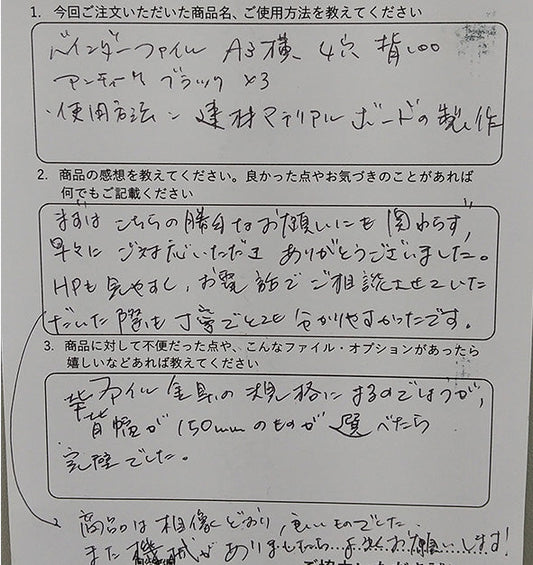 1. 今回ご注文いただいた商品名、ご使用方法を教えてください
バインダーファイル A3横 4穴 背100
アンティーク ブラック ×3
・使用方法：建材マテリアルボードの製作
2. 商品の感想を教えてください。良かった点やお気づきのことがあれば
何でもご記載ください
まずは こちらの勝手なお願いにも 関わらず、
早々に ご対応いただき ありがとうございました。
HPも見やすく、お電話でご相談させていた
だいた際も丁寧でとても分かりやすかったです。
3. 商品に対して不便だった点や、こんなファイル・オプションがあったら
嬉しいなどあれば教えてください
ファイル金具の規格にするのでしょうが、
背幅が150mmのものが選べたら
完璧でした。
商品は想像どおり、良いものでした。
また機械がありましたらよろしくお願いします!